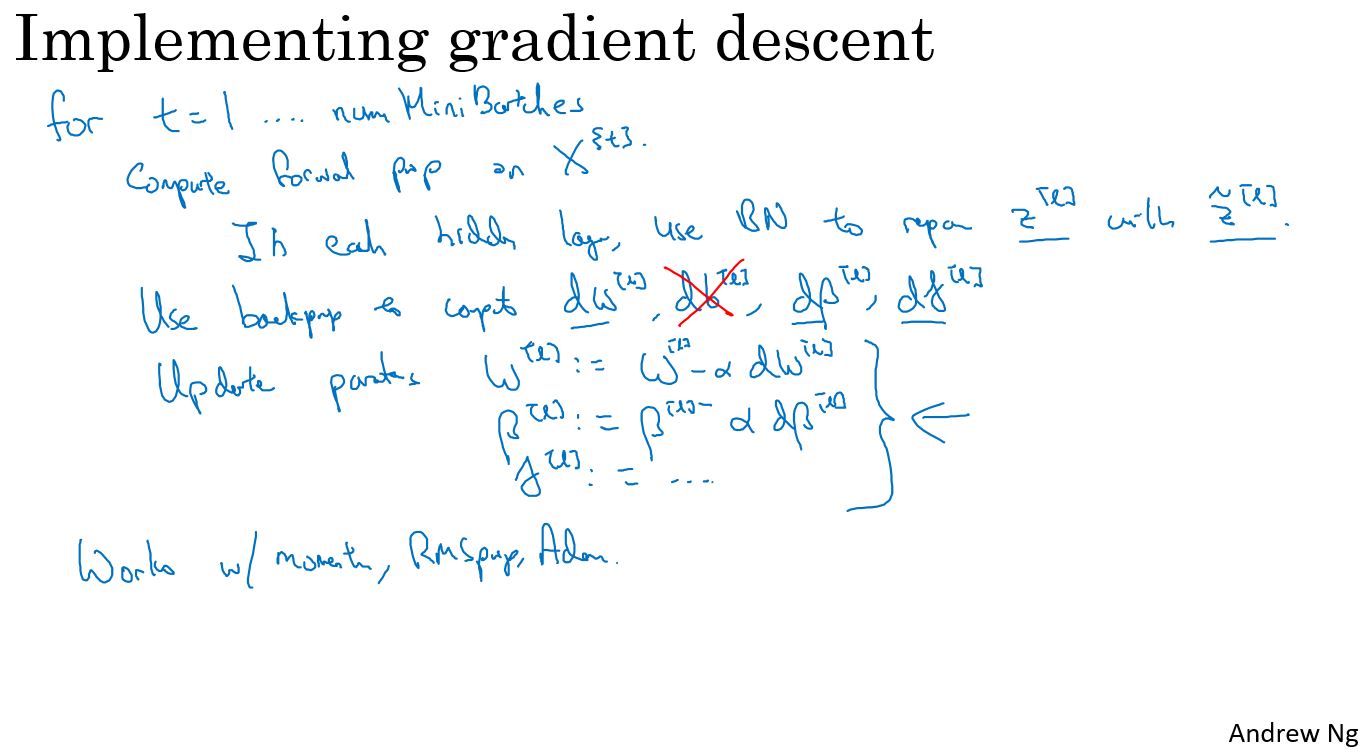 Implementing gradient descent
for t = 1 .... num MiniBatches
Compute forward prop on X^{t}.
In each hidden layer, use BN to repan z^[l] with z̃^[l].
Use backprop to compute dw^[l], db^[l], dβ^[l], dγ^[l]
Update parameters W^[l] := W^[l] - α dw^[l]
β^[l] := β^[l] - α dβ^[l]
γ^[l] := ....
Works w/ momentum, RMSprop, Adam.
Andrew Ng